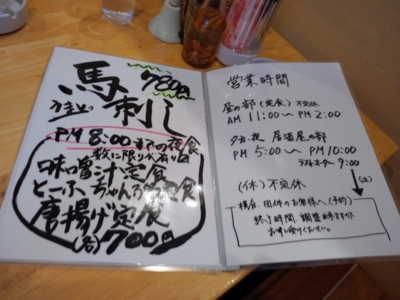 馬刺し
780円
PM 8:00までの夜食
数に限りが有り
味噌汁定食
唐揚げ定食
(各)700円
営業時間
昼の部(定食) 不定休
AM 11:00〜PM 2:00
夕方・夜 居酒屋の部
PM 5:00〜PM 10:00
ラストオーダー 9:00
(休) 不定休
宴会、団体のお客様へ(予約)
終了時間、調整出来ますので
お申し付けください。